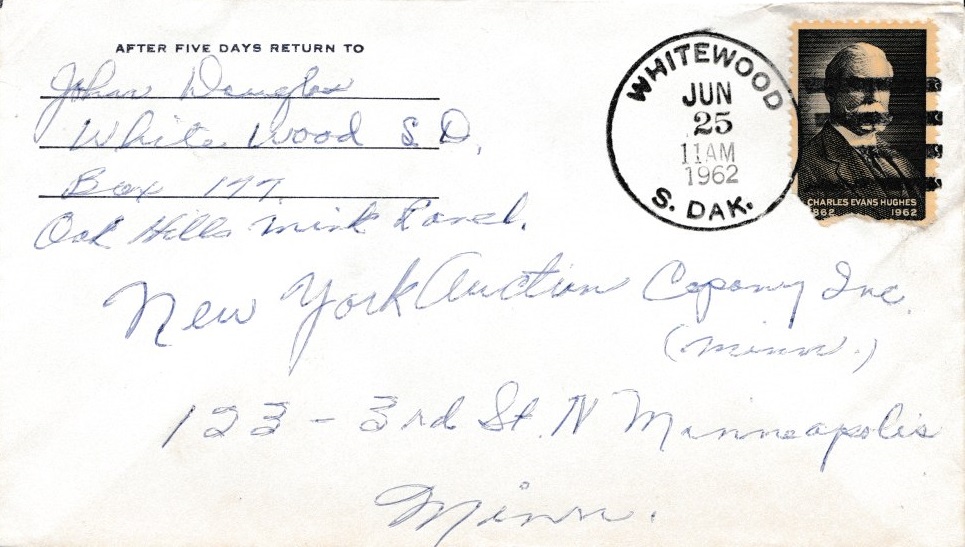 AFTER FIVE DAYS RETURN TO
John Douglas
White Wood S. D.
Box 177
Oak Hills Mink Ranch.
WHITEWOOD
JUN
25
11AM
1962
S. DAK.
CHARLES EVANS HUGHES
1862 1962
New York Auction Copany Inc.
(Minn.)
123 - 3rd St. N Minneapolis
Minn.